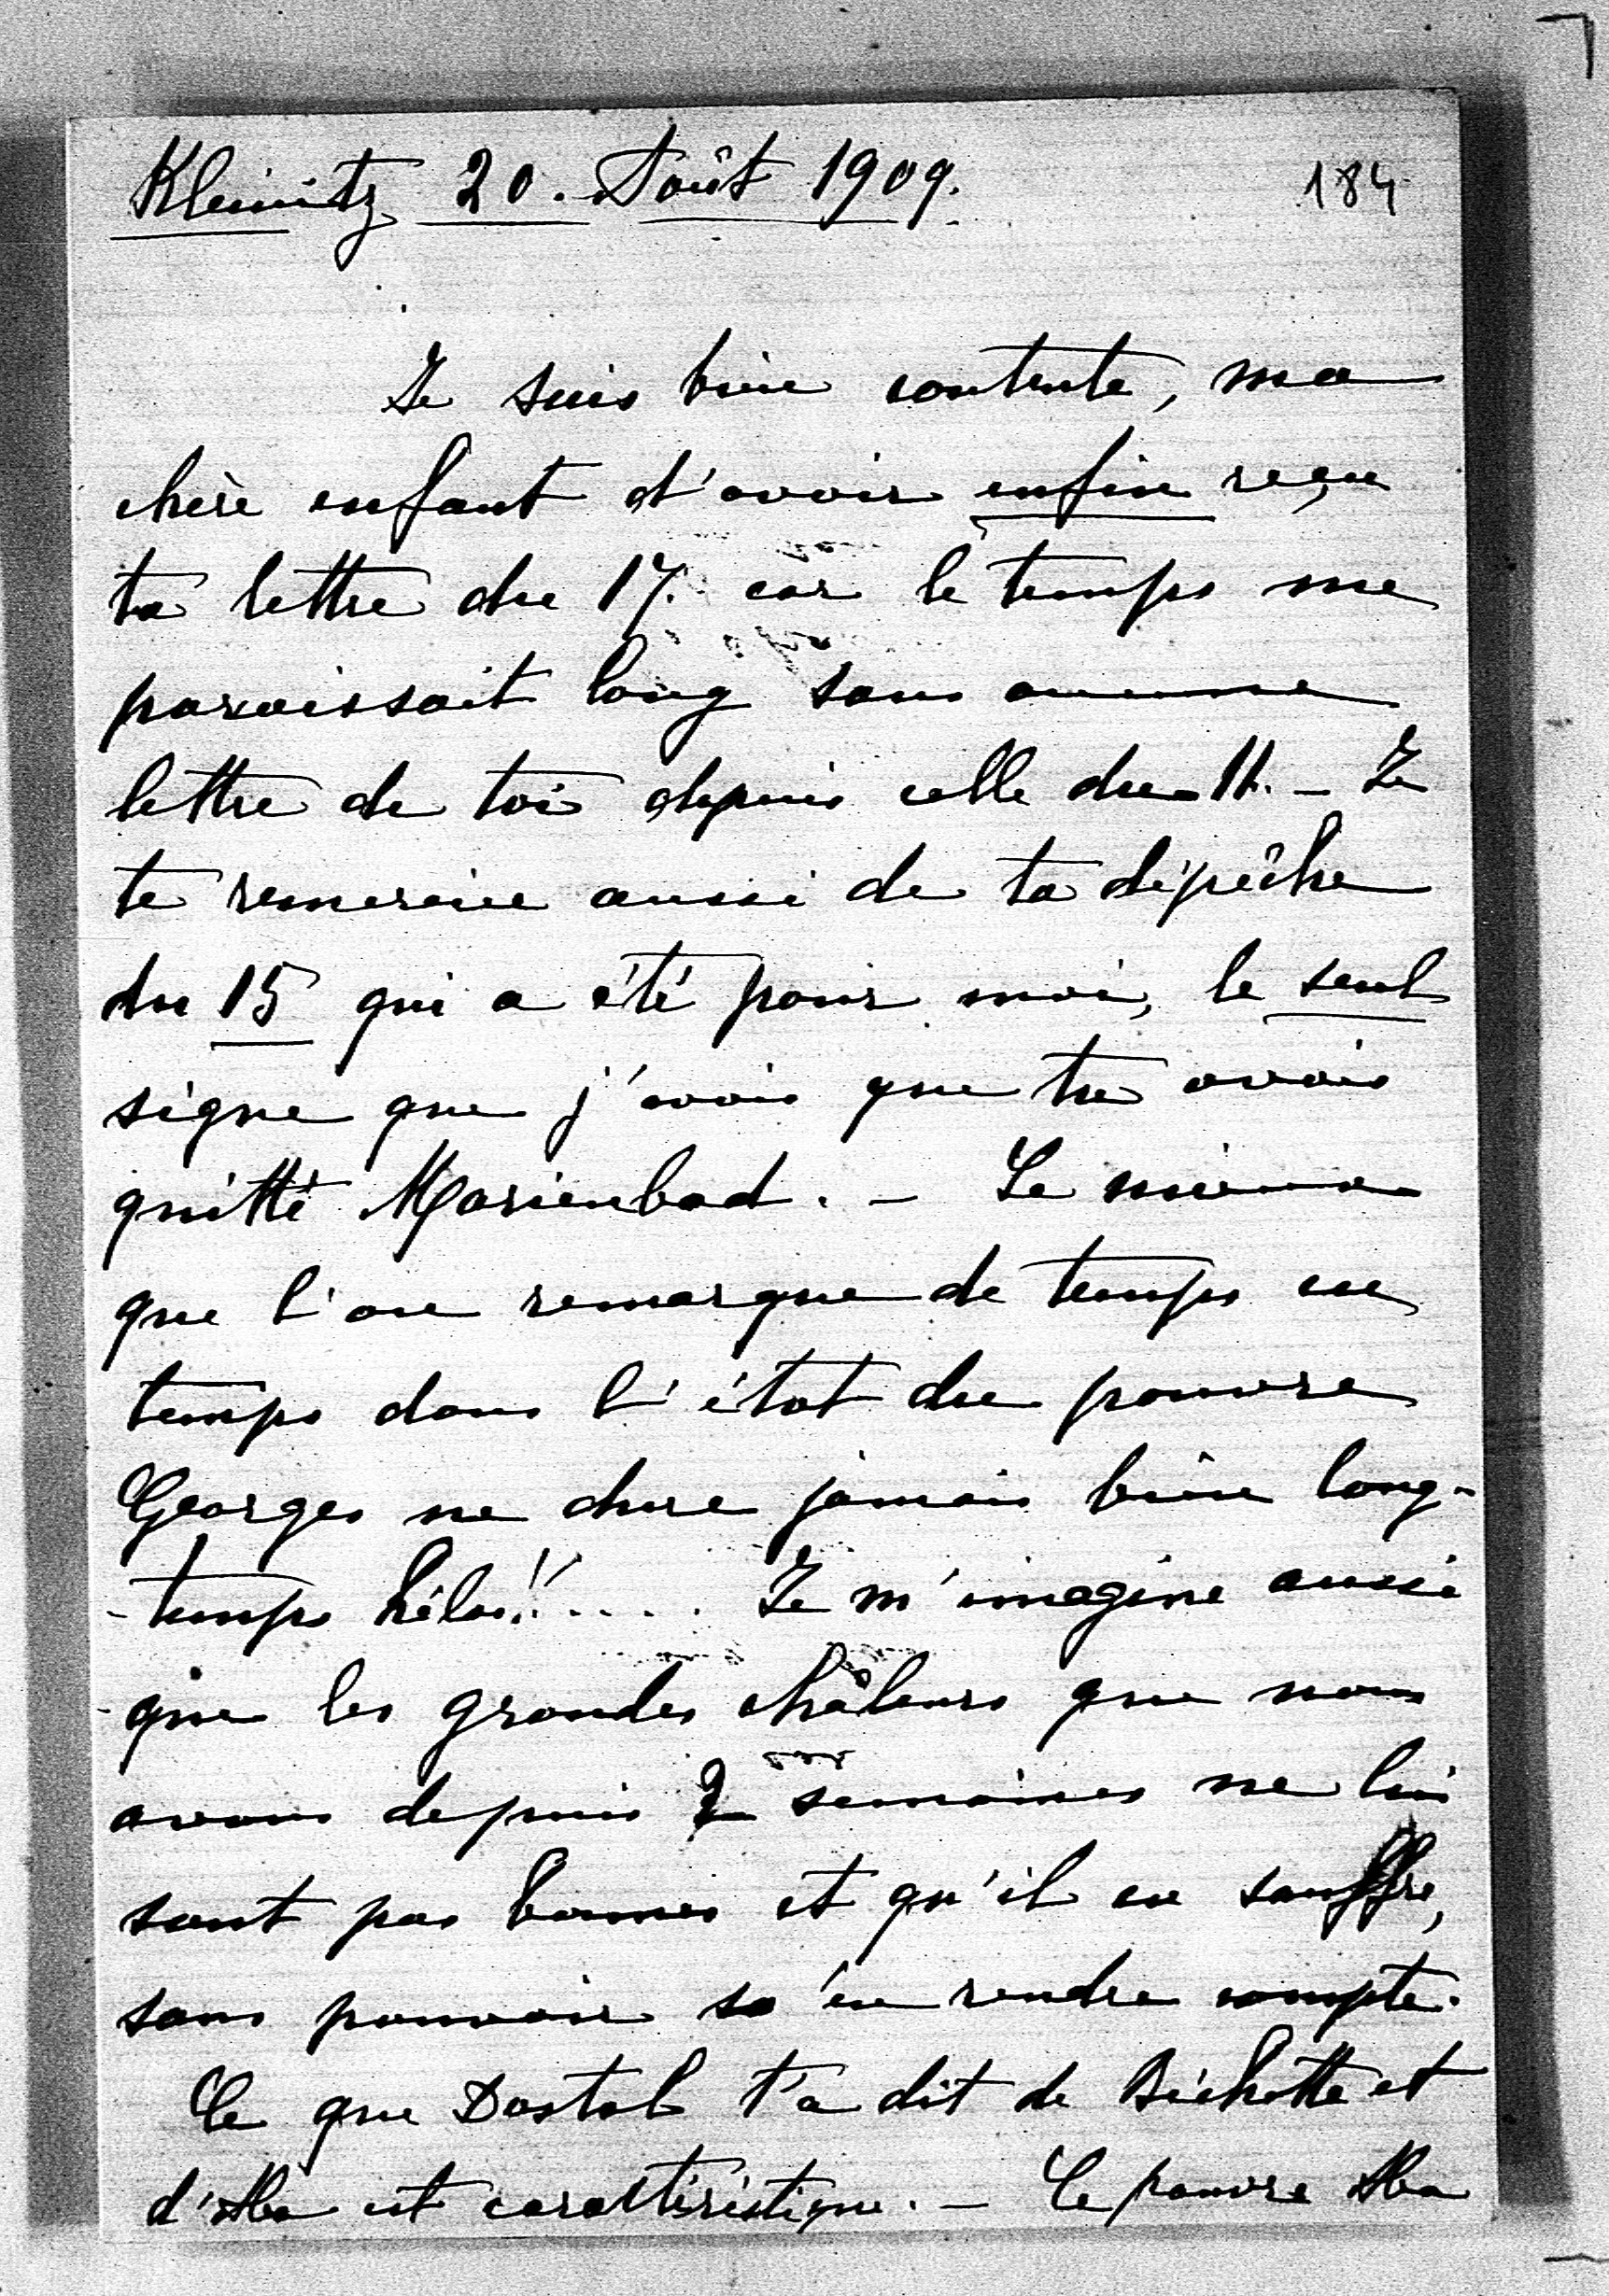 Kleinitz 20. Août 1909.
184
Je suis bien contente, ma
chère enfant d'avoir enfin reçu
ta lettre du 17. car le temps me
paraissait long sans aucune
lettre de toi depuis celle du 11. – Je
te remercie aussi de ta dépêche
du 15 qui a été pour moi, le seul
signe que j'avais que tu avais
quitté Marienbad. – Le mieux
que l'on remarque de temps en
temps dans l'état du pauvre
Georges ne dure jamais bien long-
-temps hélas!!.... Je m'imagine aussi
que les grandes châleurs que nous
avons depuis 2 semaines ne lui
sont pas bonnes et qu'il en souffre,
sans pouvoir s'en rendre compte.
Ce que Dostal t'a dit de Bichette et
d'Aba est caractéristique. – Ce pauvre Aba